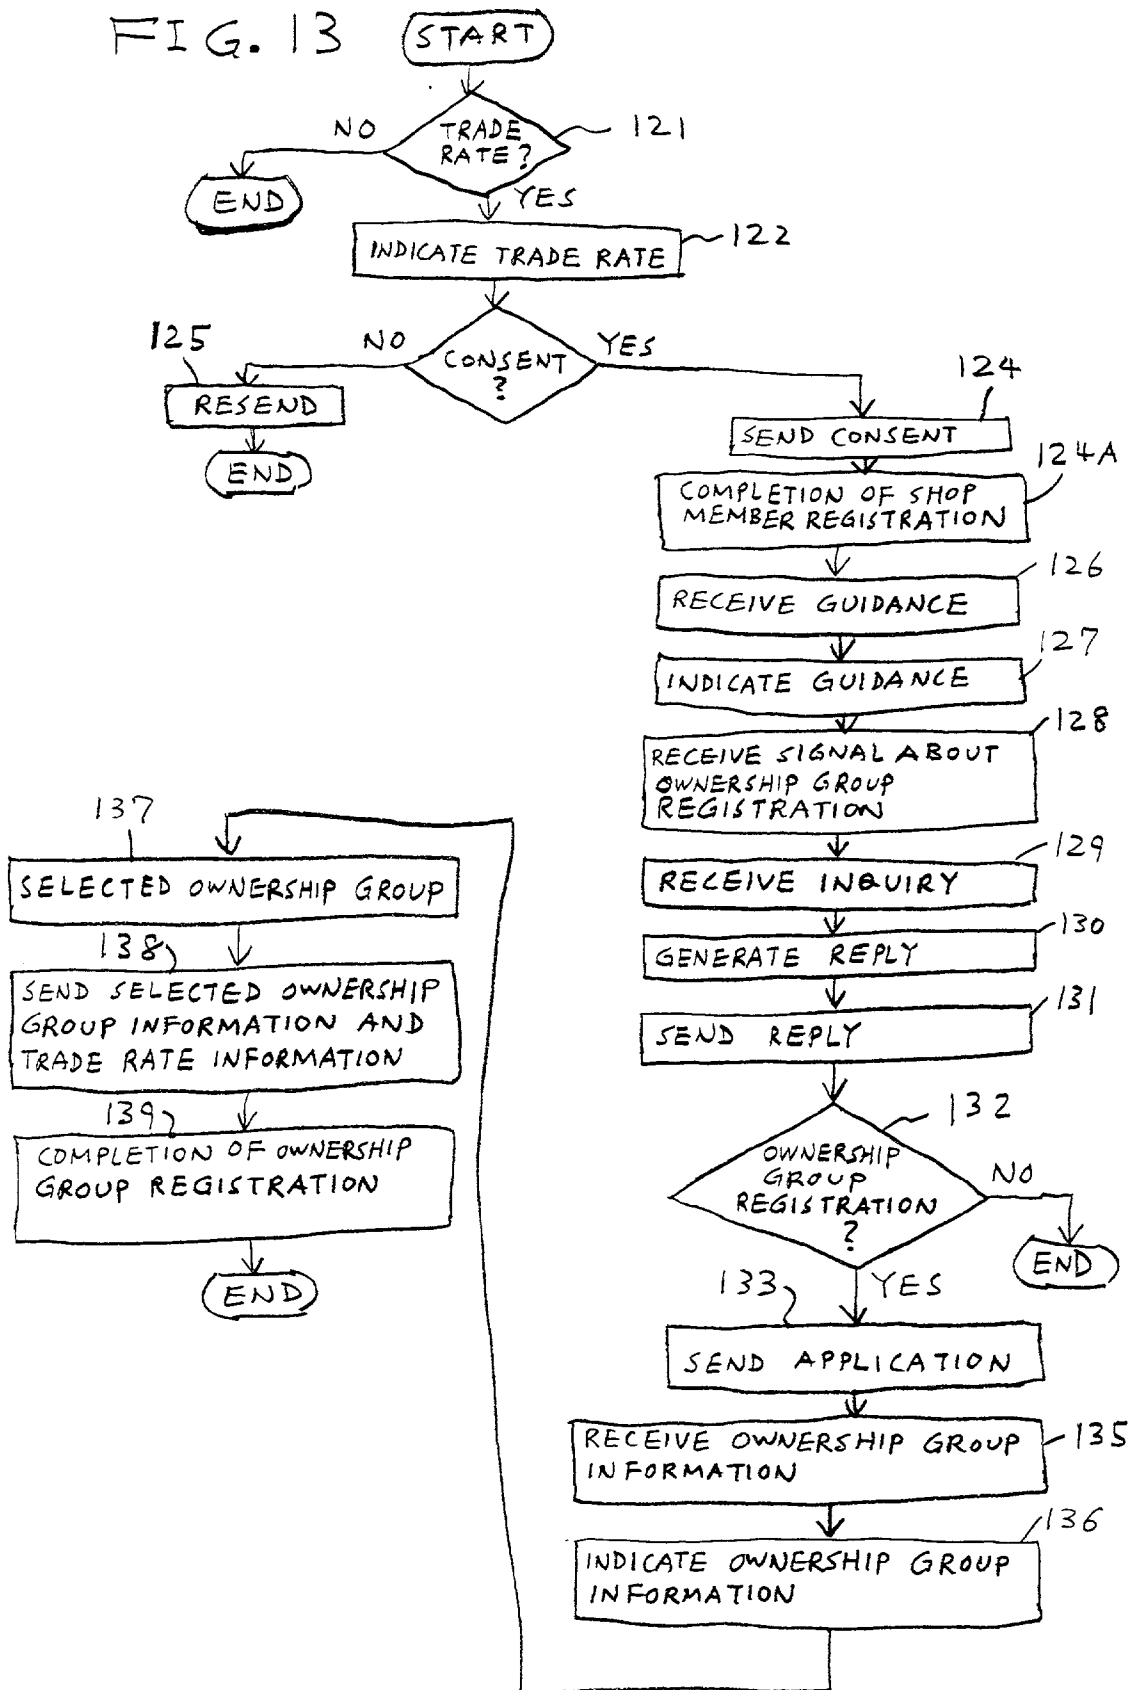 FIG. 13
START
TRADE
RATE?
121
NO
END
YES
INDICATE TRADE RATE
122
CONSENT
?
NO
YES
125
RESEND
END
124
SEND CONSENT
124A
COMPLETION OF SHOP
MEMBER REGISTRATION
126
RECEIVE GUIDANCE
127
INDICATE GUIDANCE
128
RECEIVE SIGNAL ABOUT
OWNERSHIP GROUP
REGISTRATION
129
RECEIVE INQUIRY
130
GENERATE REPLY
131
SEND REPLY
132
OWNERSHIP
GROUP
REGISTRATION
?
NO
END
YES
133
SEND APPLICATION
135
RECEIVE OWNERSHIP GROUP
INFORMATION
136
INDICATE OWNERSHIP GROUP
INFORMATION
137
SELECTED OWNERSHIP GROUP
138
SEND SELECTED OWNERSHIP
GROUP INFORMATION AND
TRADE RATE INFORMATION
139
COMPLETION OF OWNERSHIP
GROUP REGISTRATION
END